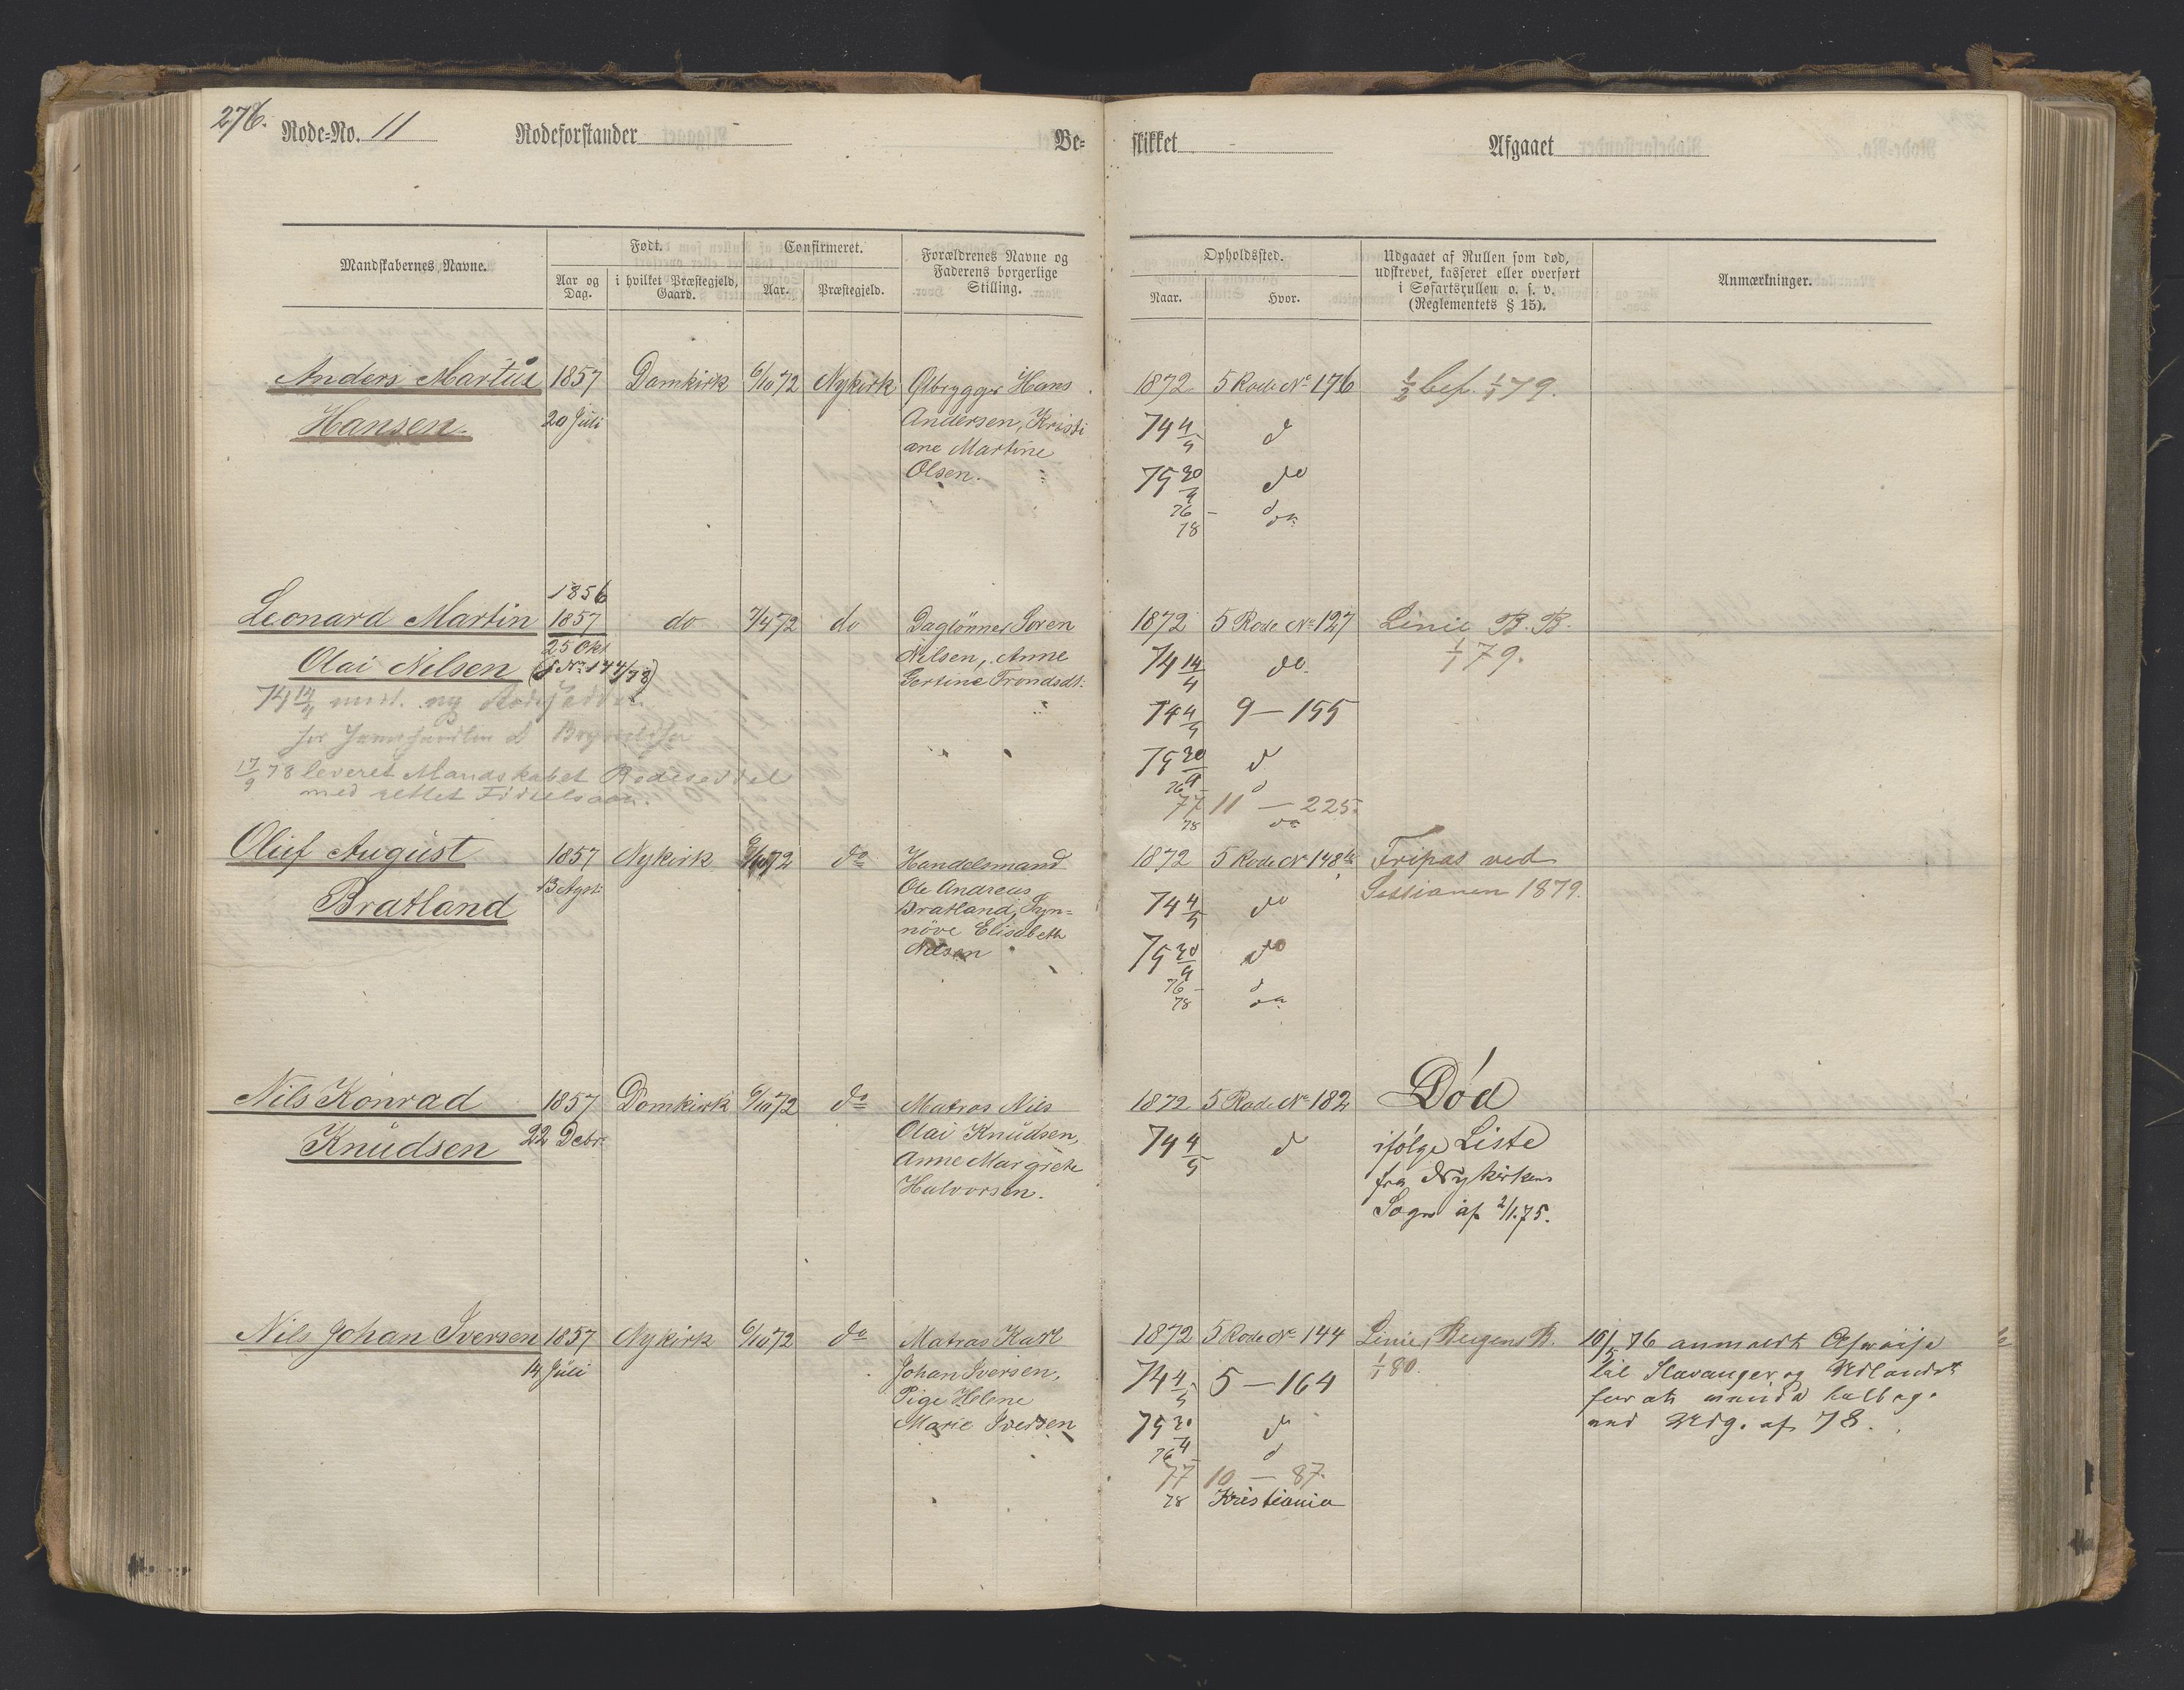 276.
Rode-No. 11 Rodeforstander Be-
Mandskabernes Navne.
Født.
Aar og Dag.
i hvilket Præstegjeld, Gaard.
Confirmeret.
Aar.
Præstegjeld.
Forældrenes Navne og
Faderens borgerlige
Stilling.
Anders Martin 1857 Domkirk 6/10 72 Nykirk Ølbrygger Hans
Hansen. 20 Juli Andersen, Kristi
ane Martine
Olsen.
1856
Leonard Martin 1857 do 7/4 72 do Daglønner Søren
25 Okt
Olai Nilsen (J No 144/78) Nilsen, Anne
Gertine Trondsdt:
74 14/4 ny
17/9 78 leveret Mandskabet Rodeseddel
med rettet Fødselsaar.
Oluf August 1857 Nykirk 6/10 72 do Handelsmand
Bratland 13 Agst: Ole Andreas
Bratland, Syn-
növe Elisabeth
Nilsen
Nils Konrad 1857 Domkirk 6/10 72 do Matros Nils
Knudsen 22 Debr. Olai Knudsen,
Anne Margrete
Halvorsen.
Nils Johan Iversen 1857 Nykirk 6/10 72 do Matros Karl
14 Juli Johan Iversen,
Pige Helene
Marie Iversen
skikket Afgaaet
Opholdssted.
Naar.
Hvor.
Udgaaet af Rullen som død,
udskrevet, kasseret eller overført
i Søfartsrullen o. s. v.
(Reglementets § 15).
Anmærkninger.
1872 5 Rode No 176 1/2 bef. 1/1 79.
74 4/5 d
75 30/4 do
76 - d
78 do
1872 5 Rode No 127 Linie B. B.
74 14/4 do 1/1 79.
74 4/5 9 — 155
75 30/4 d
76 - d
77 11 — 225.
78 do
1872 5 Rode No 148 Fripas ved
Sessionen 1879.
74 4/5 do
75 30/4 do
76 - d
78 do
1872 5 Rode No 182 Död
74 4/5 d ifølge Liste
fra Nykirkens
Sogn af 2/1.75.
1872 5 Rode No 144 Linie, Bergens B. 10/5 76 anmeldt Afreise
74 4/5 5 — 164 1/1 80. til Stavanger og Udlandet
75 30/4 d for at
76 - d med Udg. af 78.
77 10 — 87.
78 Kristiania